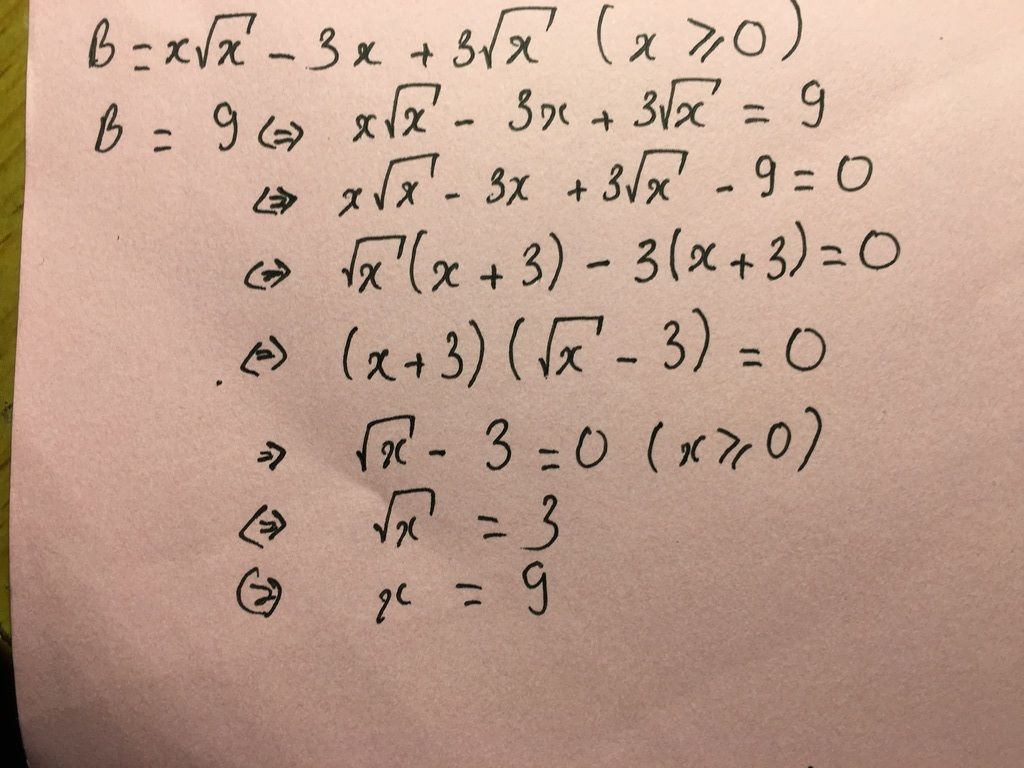 B = x√x - 3x + 3√x (x ⩾ 0)
B = 9 ⇔ x√x - 3x + 3√x = 9
⇔ x√x - 3x + 3√x - 9 = 0
⇔ √x (x + 3) - 3(x + 3) = 0
⇔ (x + 3) (√x - 3) = 0
⇒ √x - 3 = 0 (x ⩾ 0)
⇔ √x = 3
⇔ x = 9